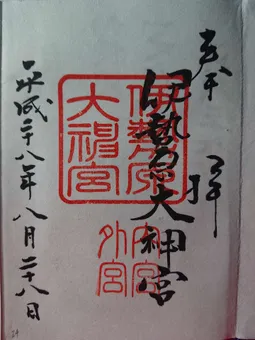 奉拝
伊勢原大神宮
平成二十八年八月二十八日
伊勢原
大神宮
内宮
外宮
29